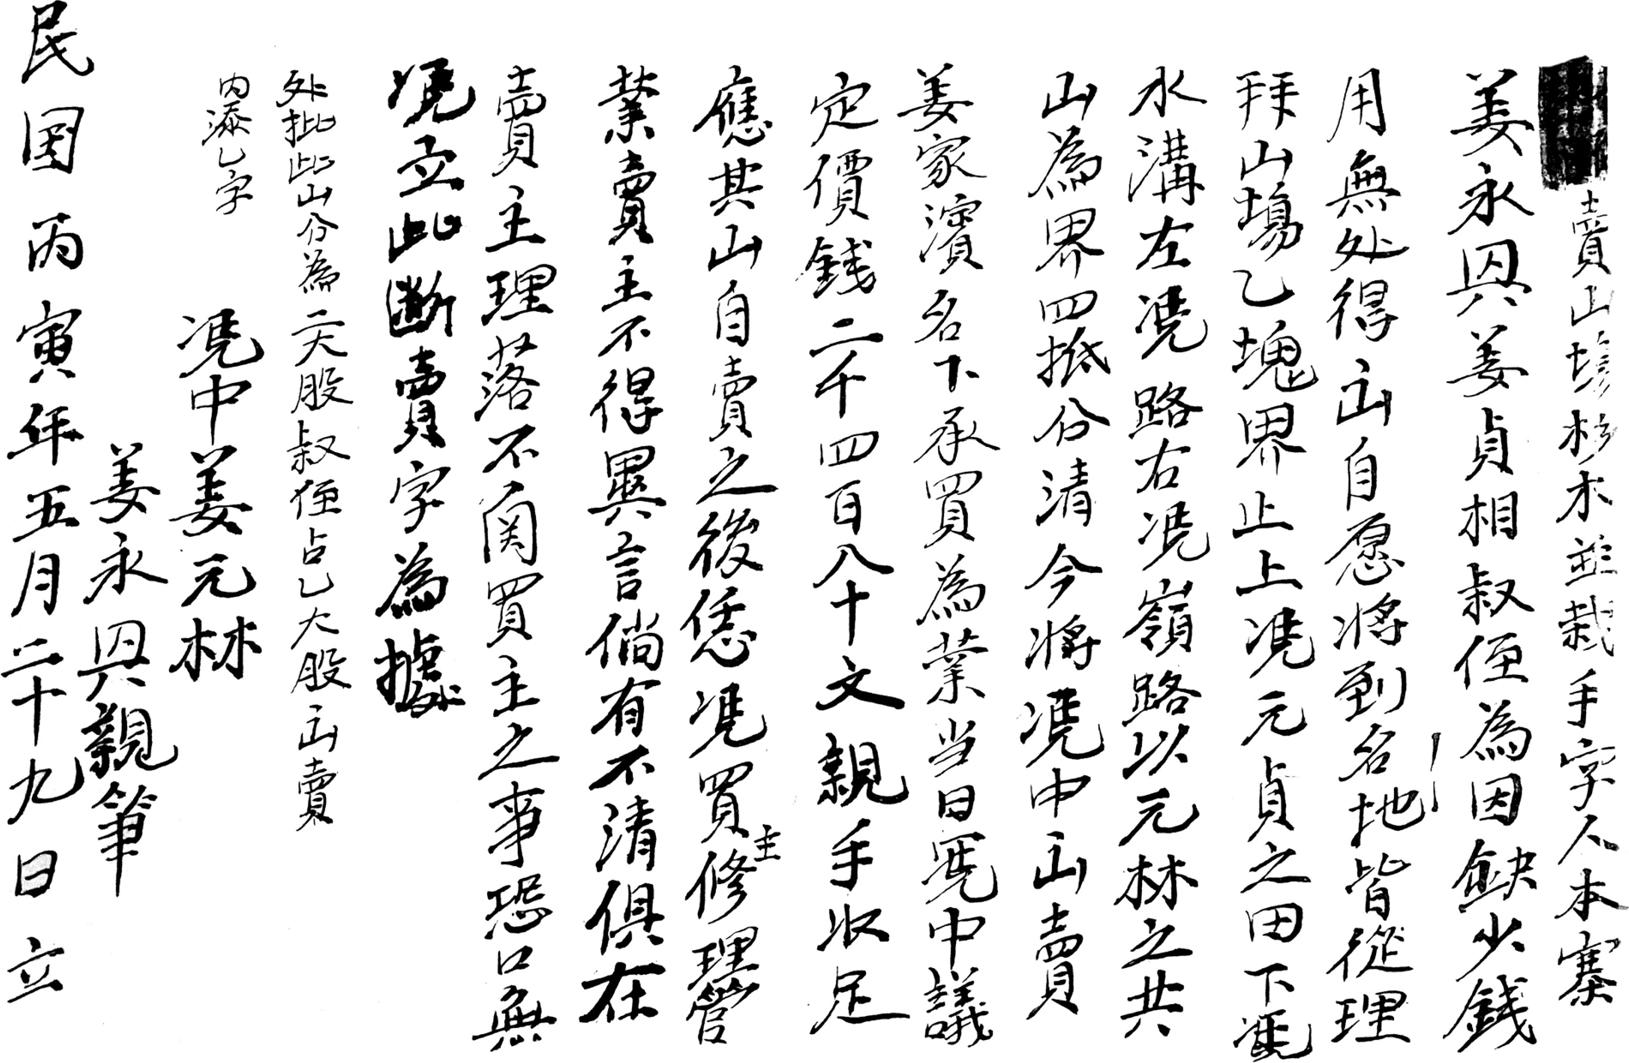 賣山塲杉木並栽手字人本寨
姜永興姜貞相叔侄為因缺少錢
用無处得出自愿將到名地皆從理
拜山塲乙塊界止上凴元貞之田下凴
水溝左凴路右凴嶺路以元林之共
山為界四抵分清今將凴中出賣
姜家濱名下承買為業当日凴中議
定價錢二千四百八十文親手收足
應其山自賣之後恁凴買主修理管
業賣主不得異言倘有不清俱在
賣主理落不関買主之事恐口無
凴立此断賣字為據
处批此山分為二大股叔侄占乙大股出賣
内添乙字
凴中姜元林
姜永興親筆
民國丙寅年五月二十九日立